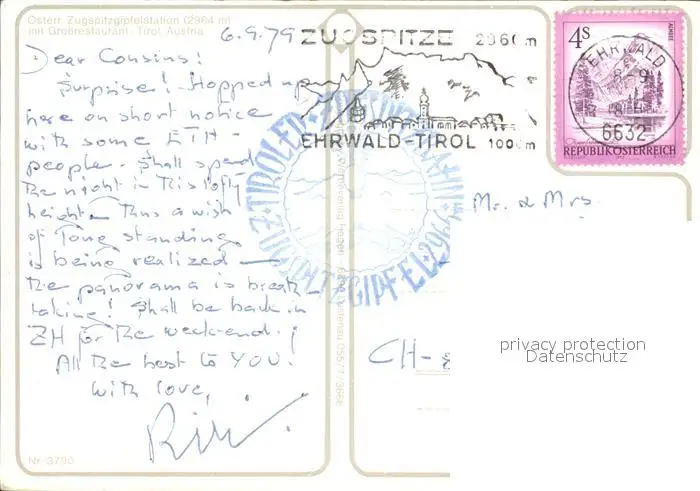 Österr. Zugspitzgipfelstation (2964 m)
mit Großrestaurant, Tirol, Austria
6.9.79
Dear Cousins!
Surprise! Hopped up
here on short notice
with some ETH-
people. Shall spend
the night in this lofty
height. Thus a wish
of long standing
is being realized —
the panorama is breath-
taking! Shall be back in
ZH for the week-end.
All the best to YOU.
With love,
Nr. 3790
ZUGSPITZE 2960m
EHRWALD-TIROL 1000m
4S
EHRWALD
6632
REPUBLIK ÖSTERREICH
TIROLER ZUGSPITZBAHN
ZUGSPITZGIPFEL 2964
05577/3666
Mr. & Mrs.
CH-
privacy protection
Datenschutz